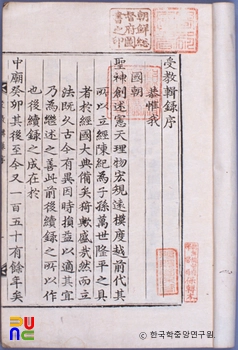 朝鮮總
督府圖
書之印
受教輯錄序
恭惟我
國朝
聖神創述憲天理物宏規遠模度越前代其
所以立經陳紀為子孫萬世隆平之具
者於經國大典備矣猗歟盛哉然而立
法既久古今有異因時損益以適其宜
乃為繼述之善此前後續錄之所以作
也後續錄之成在於
中廟癸卯其後至今又一百五十有餘年矣
© 한국학중앙연구원